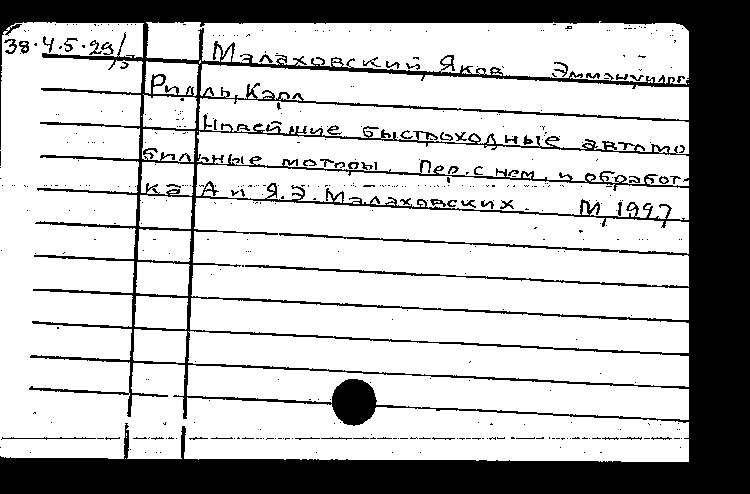 38.4.5.29/5 Малаховский, Яков Эммануилов
Ридль, Карл
Новейшие быстроходные автомо
бильные моторы. Пер. с нем. и обработ-
ка А и Я.Э. Малаховских. М, 1927.